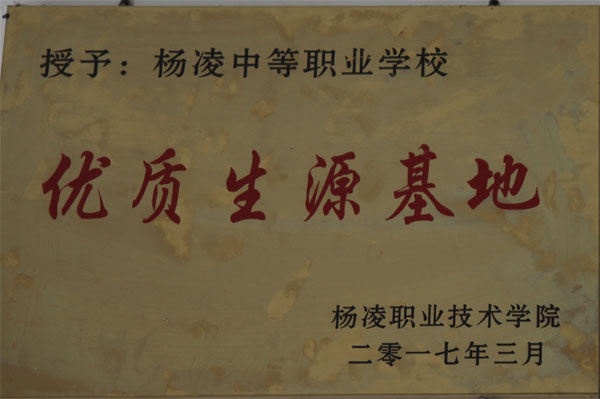 授予：杨凌中等职业学校
优质生源基地
杨凌职业技术学院
二零一七年三月